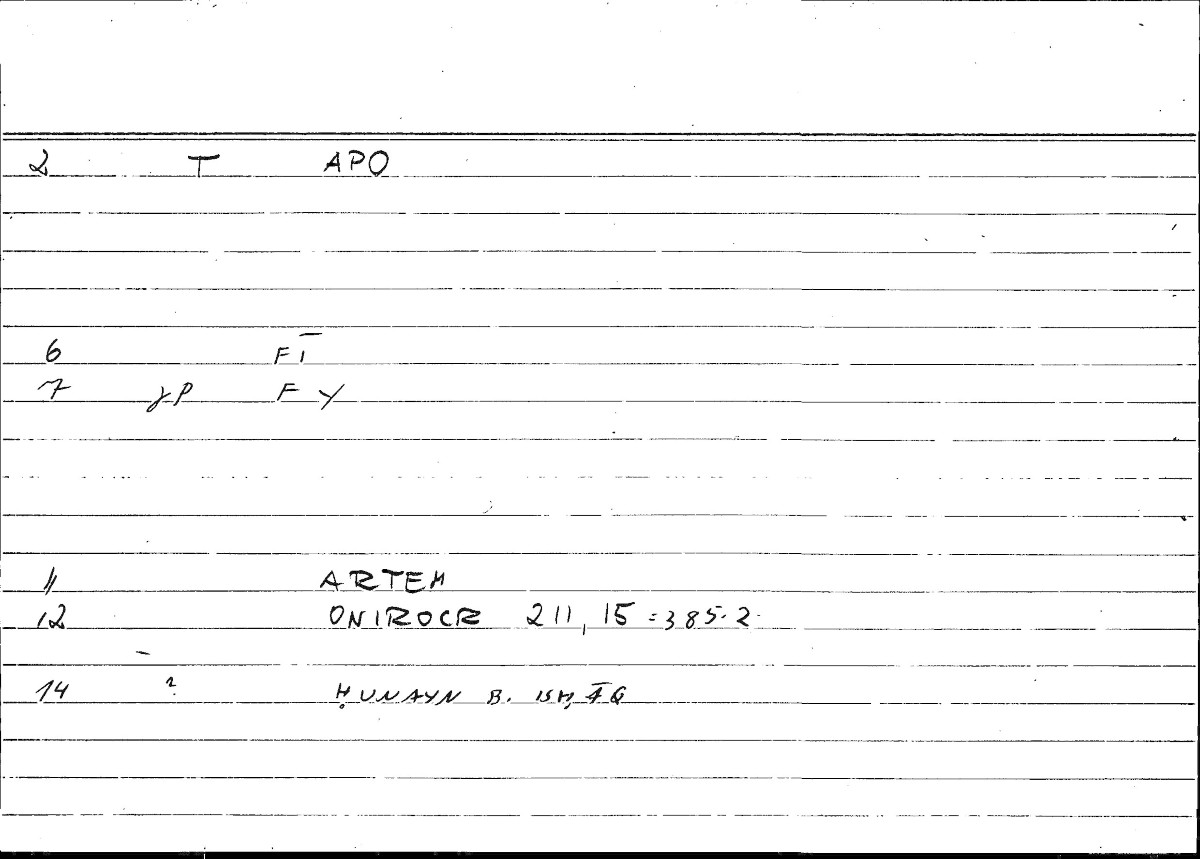 2 T APO
6 FĪ
7 γP F Y
11 ARTEM
12 ONIROCR 211, 15 = 385.2
14 ? ḤUNAYN B. ISḤĀQ